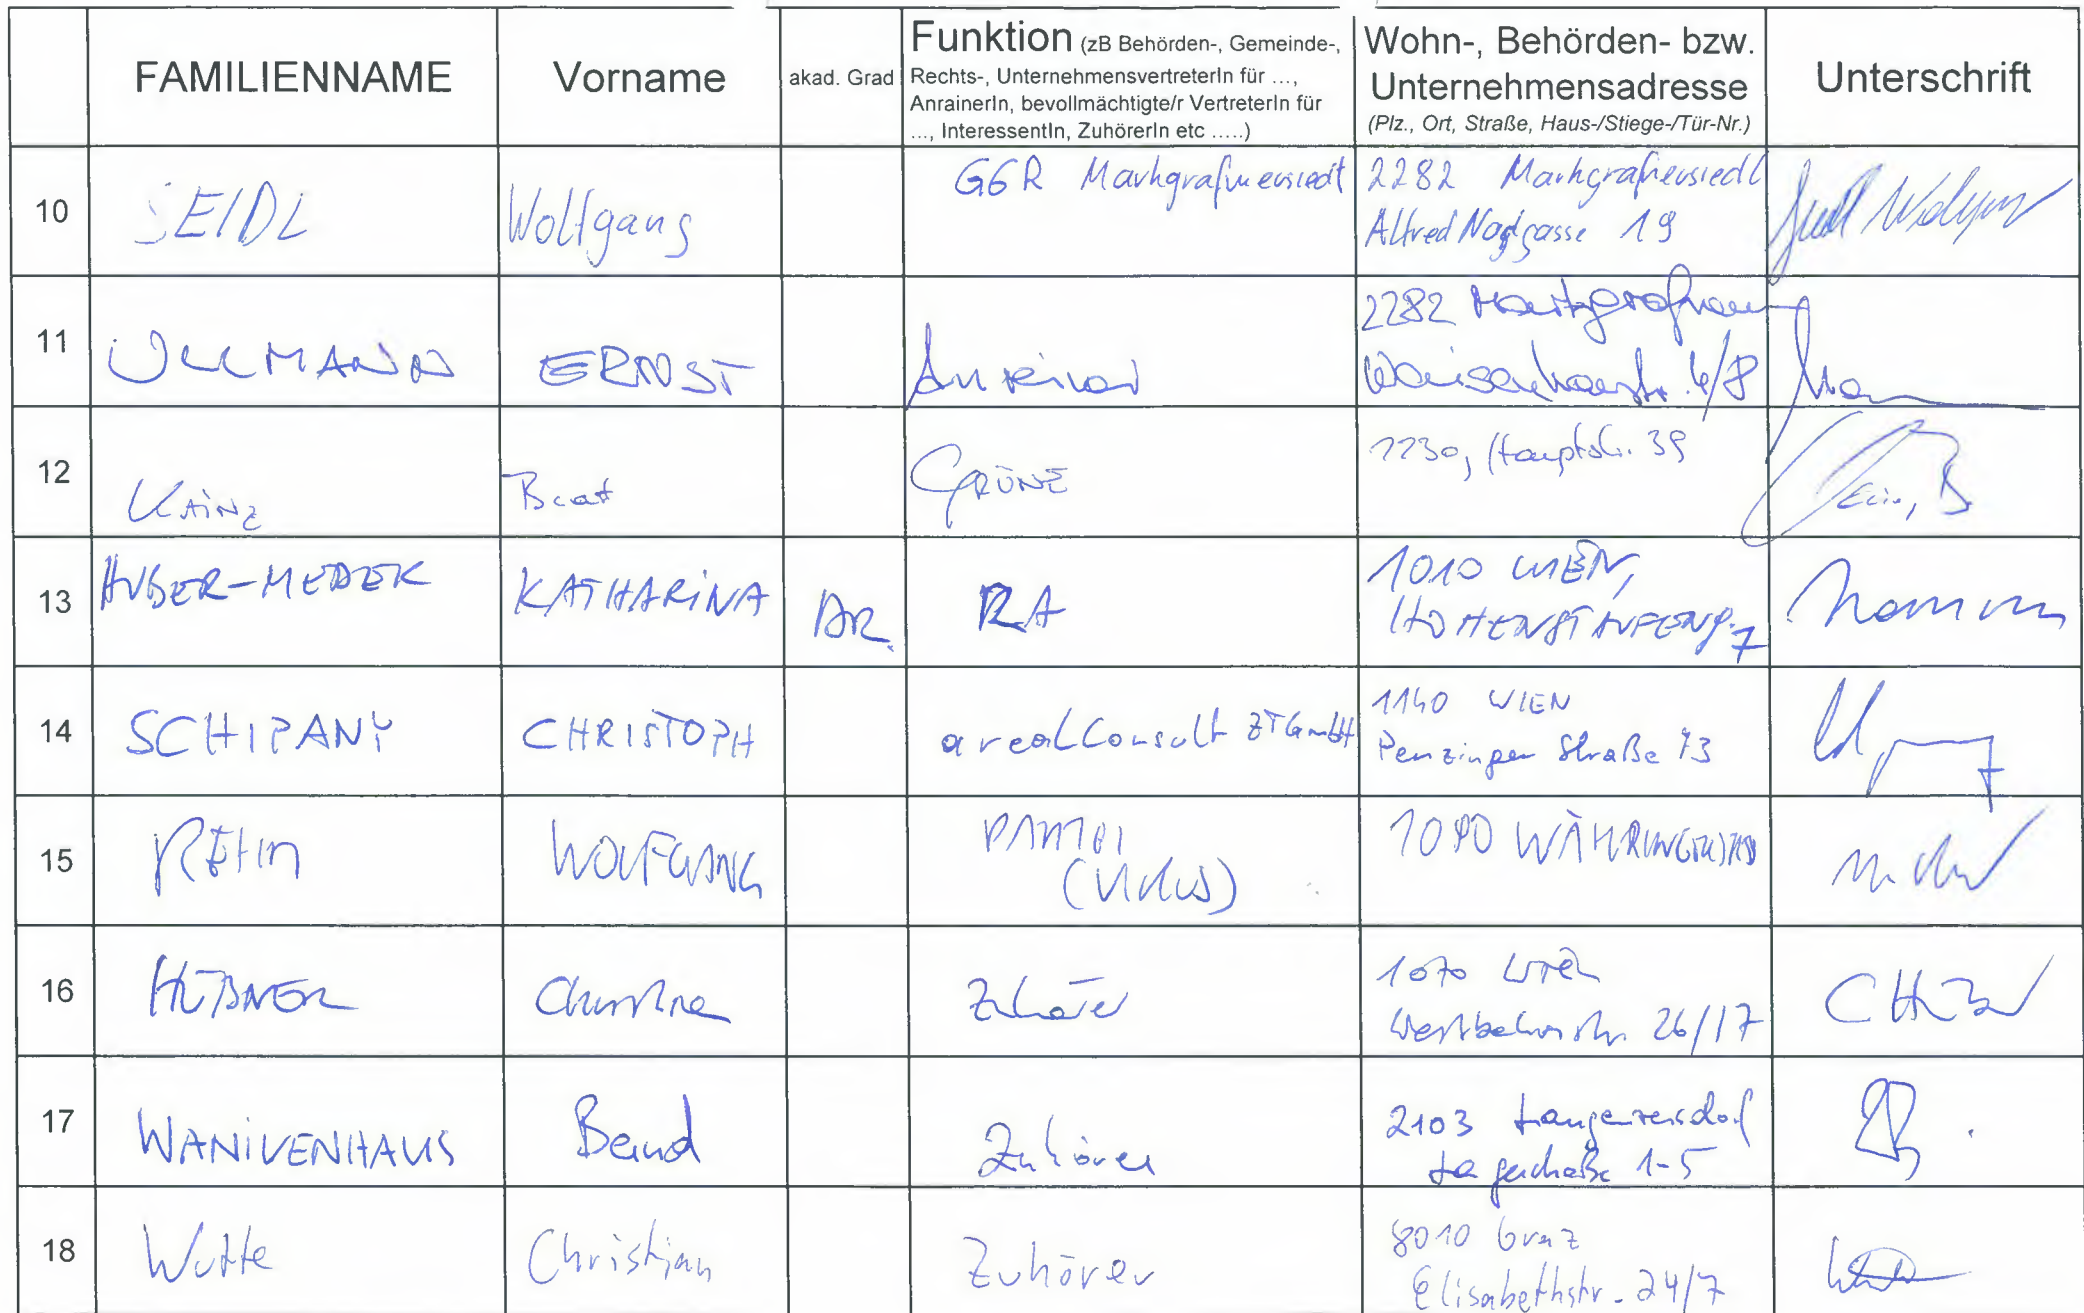 FAMILIENNAME
Vorname
akad. Grad
Funktion (zB Behörden-, Gemeinde-,
Rechts-, UnternehmensvertreterIn für ...,
AnrainerIn, bevollmächtigte/r VertreterIn für
..., InteressentIn, ZuhörerIn etc .....)
Wohn-, Behörden- bzw.
Unternehmensadresse
(Plz., Ort, Straße, Haus-/Stiege-/Tür-Nr.)
Unterschrift
10
SEIDL
Wolfgang
GGR Markgrafneusiedl
2282 Markgrafneusiedl
Alfred Naglgasse 19
11
ULLMANN
ERNST
Anrainer
2282
12
KAINZ
Beat
GRÜNE
2230, Hauptstr. 39
13
HUBER-MEDEK
KATHARINA
DR.
RA
1010 WIEN,
HOHENSTAUFENG. 7
14
SCHIPANY
CHRISTOPH
arealConsult ZT GmbH
1140 WIEN
Penzinger Straße 73
15
REHM
WOLFGANG
PARTEI
(VIRUS)
1090
16
HÜBNER
Christine
Zuhörer
1070 Wien
Westbahnstr. 26/17
17
WANIVENHAUS
Bernd
Zuhörer
2103 Langenzersdorf
Lagerstraße 1-5
18
Wutte
Christian
Zuhörer
8010 Graz
Elisabethstr. 24/7